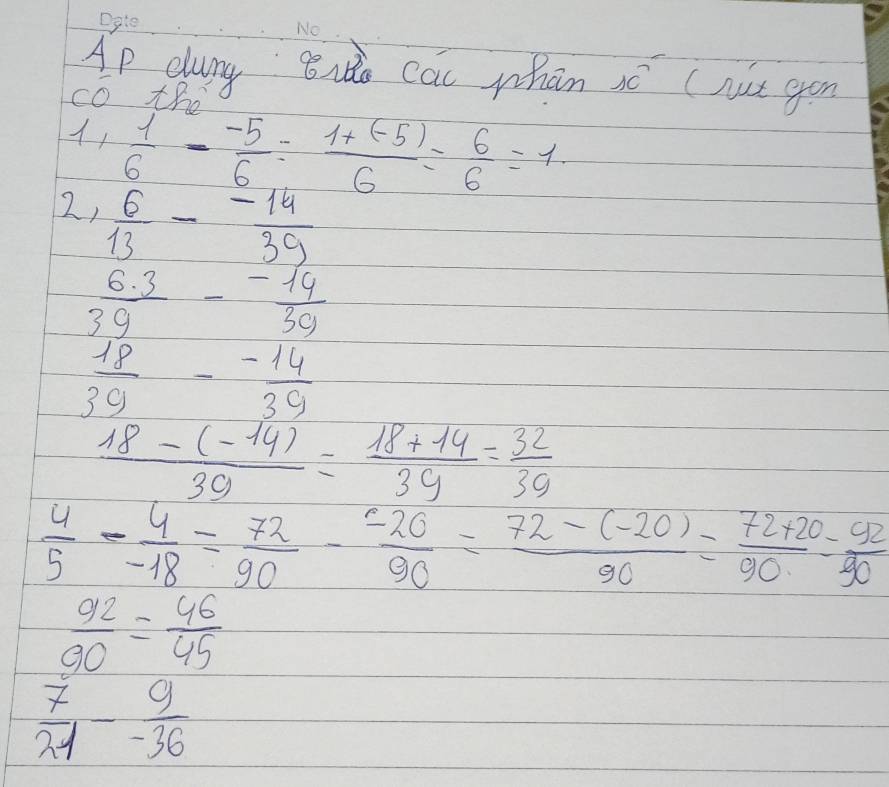 Date No
Áp dụng trừ các phân số (rút gọn
có thể
1, 1/6 - -5/6 = 1+(-5)/6 = 6/6 = 1.
2, 6/13 - -14/39
6.3/39 - -14/39
18/39 - -14/39
18-(-14)/39 = 18+14/39 = 32/39
4/5 - 4/-18 = 72/90 - -20/90 = 72-(-20)/90 = 72+20/90 = 92/90
92/90 = 46/45
7/21 - 9/-36